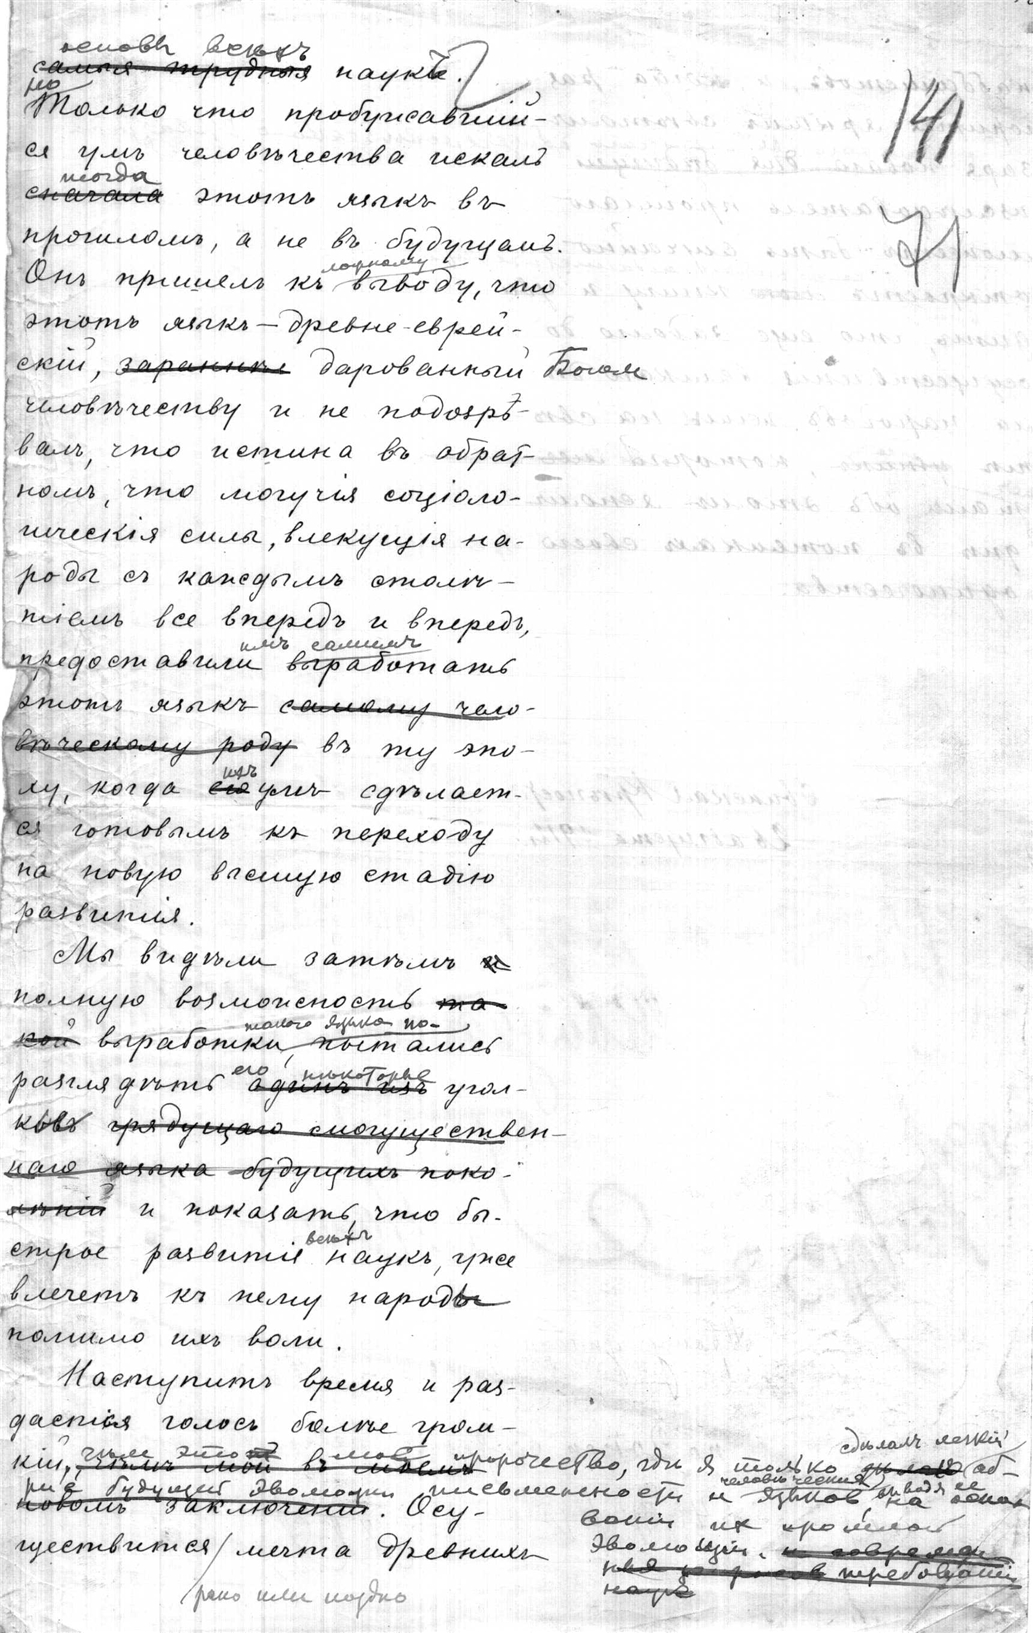 основы всѣхъ
самыя трудныя наукъ.
но
Только что пробужавшій-
ся умъ человѣчества искалъ
тогда
сначала этотъ языкъ въ
прошломъ, а не въ будущемъ.
ложному
Онъ пришелъ къ выводу, что
этотъ языкъ — древне-еврей-
скій, заранѣе дарованный Богом
человѣчеству и не подозрѣ-
валъ, что истина въ обрат-
номъ, что могучія соціоло-
гическія силы, влекущія на-
роды съ каждымъ столѣ-
тіемъ все впередъ и впередъ,
имъ самимъ
предоставили выработать
этотъ языкъ самому чело-
вѣческому роду въ ту эпо-
ху, когда его умъ сдѣлает-
ихъ
ся готовымъ къ переходу
на новую высшую стадію
развитія.
Мы видѣли затѣмъ и
полную возможность та
кой выработки, пытались
такого языка по-
разглядѣть одинъ изъ угол-
его нѣкоторые
ковъ грядущаго могуществен-
наго языка будущихъ поко-
лѣній и показать, что бы-
всѣхъ
строе развитіе наукъ, уже
влечетъ къ нему народы
помимо ихъ воли.
Наступитъ время и раз-
дастся голосъ болѣе гром-
кій, чѣмъ мой въ моемъ
чѣм этот мое пророчество, гдѣ я только дѣлаю сдѣлалъ легкій аб-
рис будущей эволюціи письменности и человѣческих языков, выводя ее на осно
новомъ заключеніи. Осу-
ваніи их прошлой
эволюціи, и современ
требованій
наукъ
ществится/ мечта древнихъ
рано или поздно
141
71